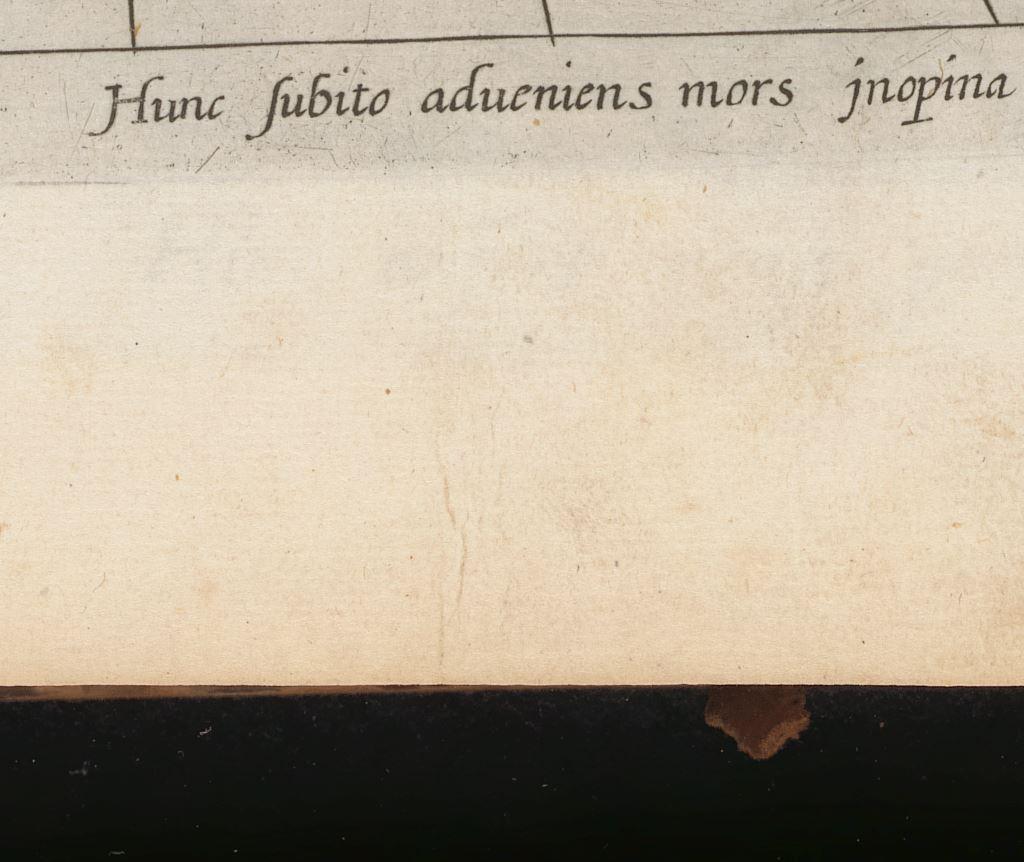 Hunc ſubito adueniens mors jnopina